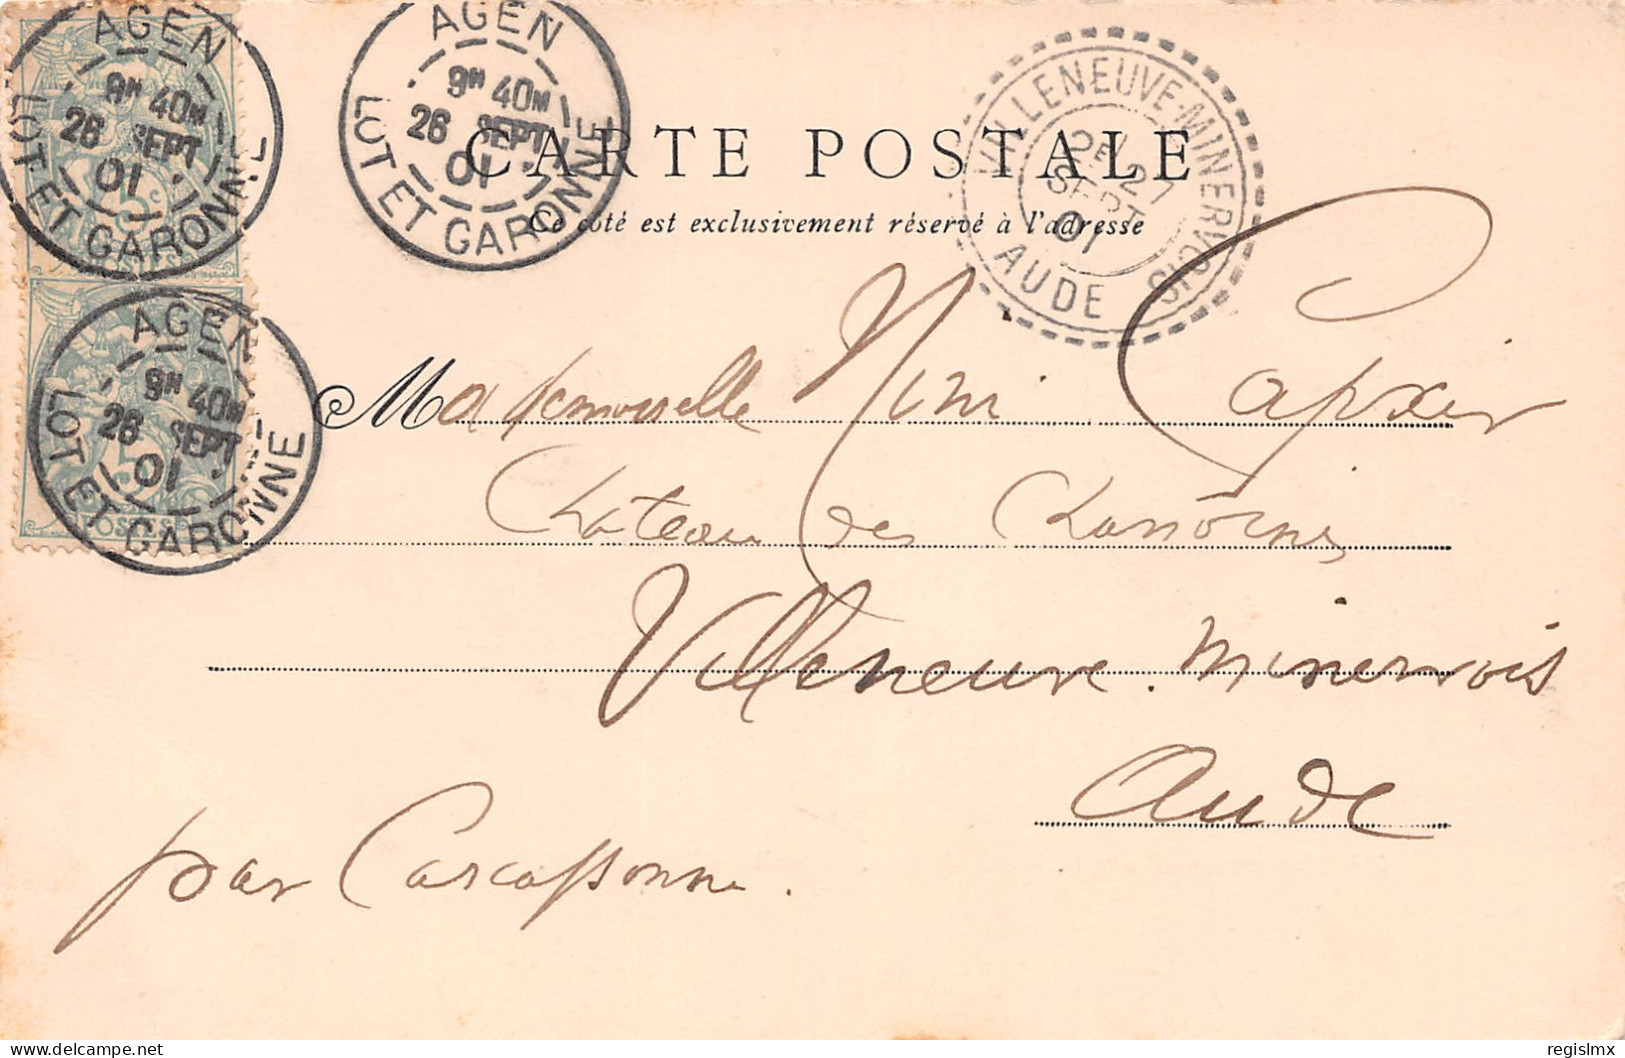 AGEN
9H 40M
26 SEPT
01
LOT ET GARONNE
AGEN
9H 40M
26 SEPT
01
LOT ET GARONNE
AGEN
9H 40M
26 SEPT
01
LOT ET GARONNE
VILLENEUVE-MINERVOIS
27
SEPT
01
AUDE
CARTE POSTALE
Ce côté est exclusivement réservé à l'adresse
Mademoiselle Mimi
Chateau des Chanoines
Villeneuve. Minervois
Aude
par Carcassonne.
delcampe.net
regislmx